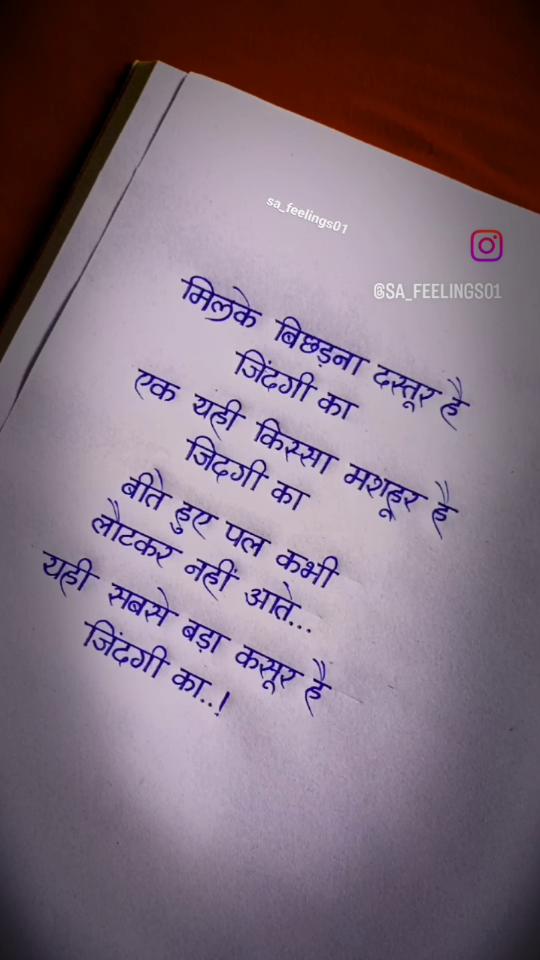 sa_feelings01
@SA_FEELINGS01
मिलके बिछड़ना दस्तूर है
जिंदगी का
एक यही किस्सा मशहूर है
जिदगी का
बीते हुए पल कभी
लौटकर नहीं आते...
यही सबसे बड़ा कसूर है
जिंदगी का..!